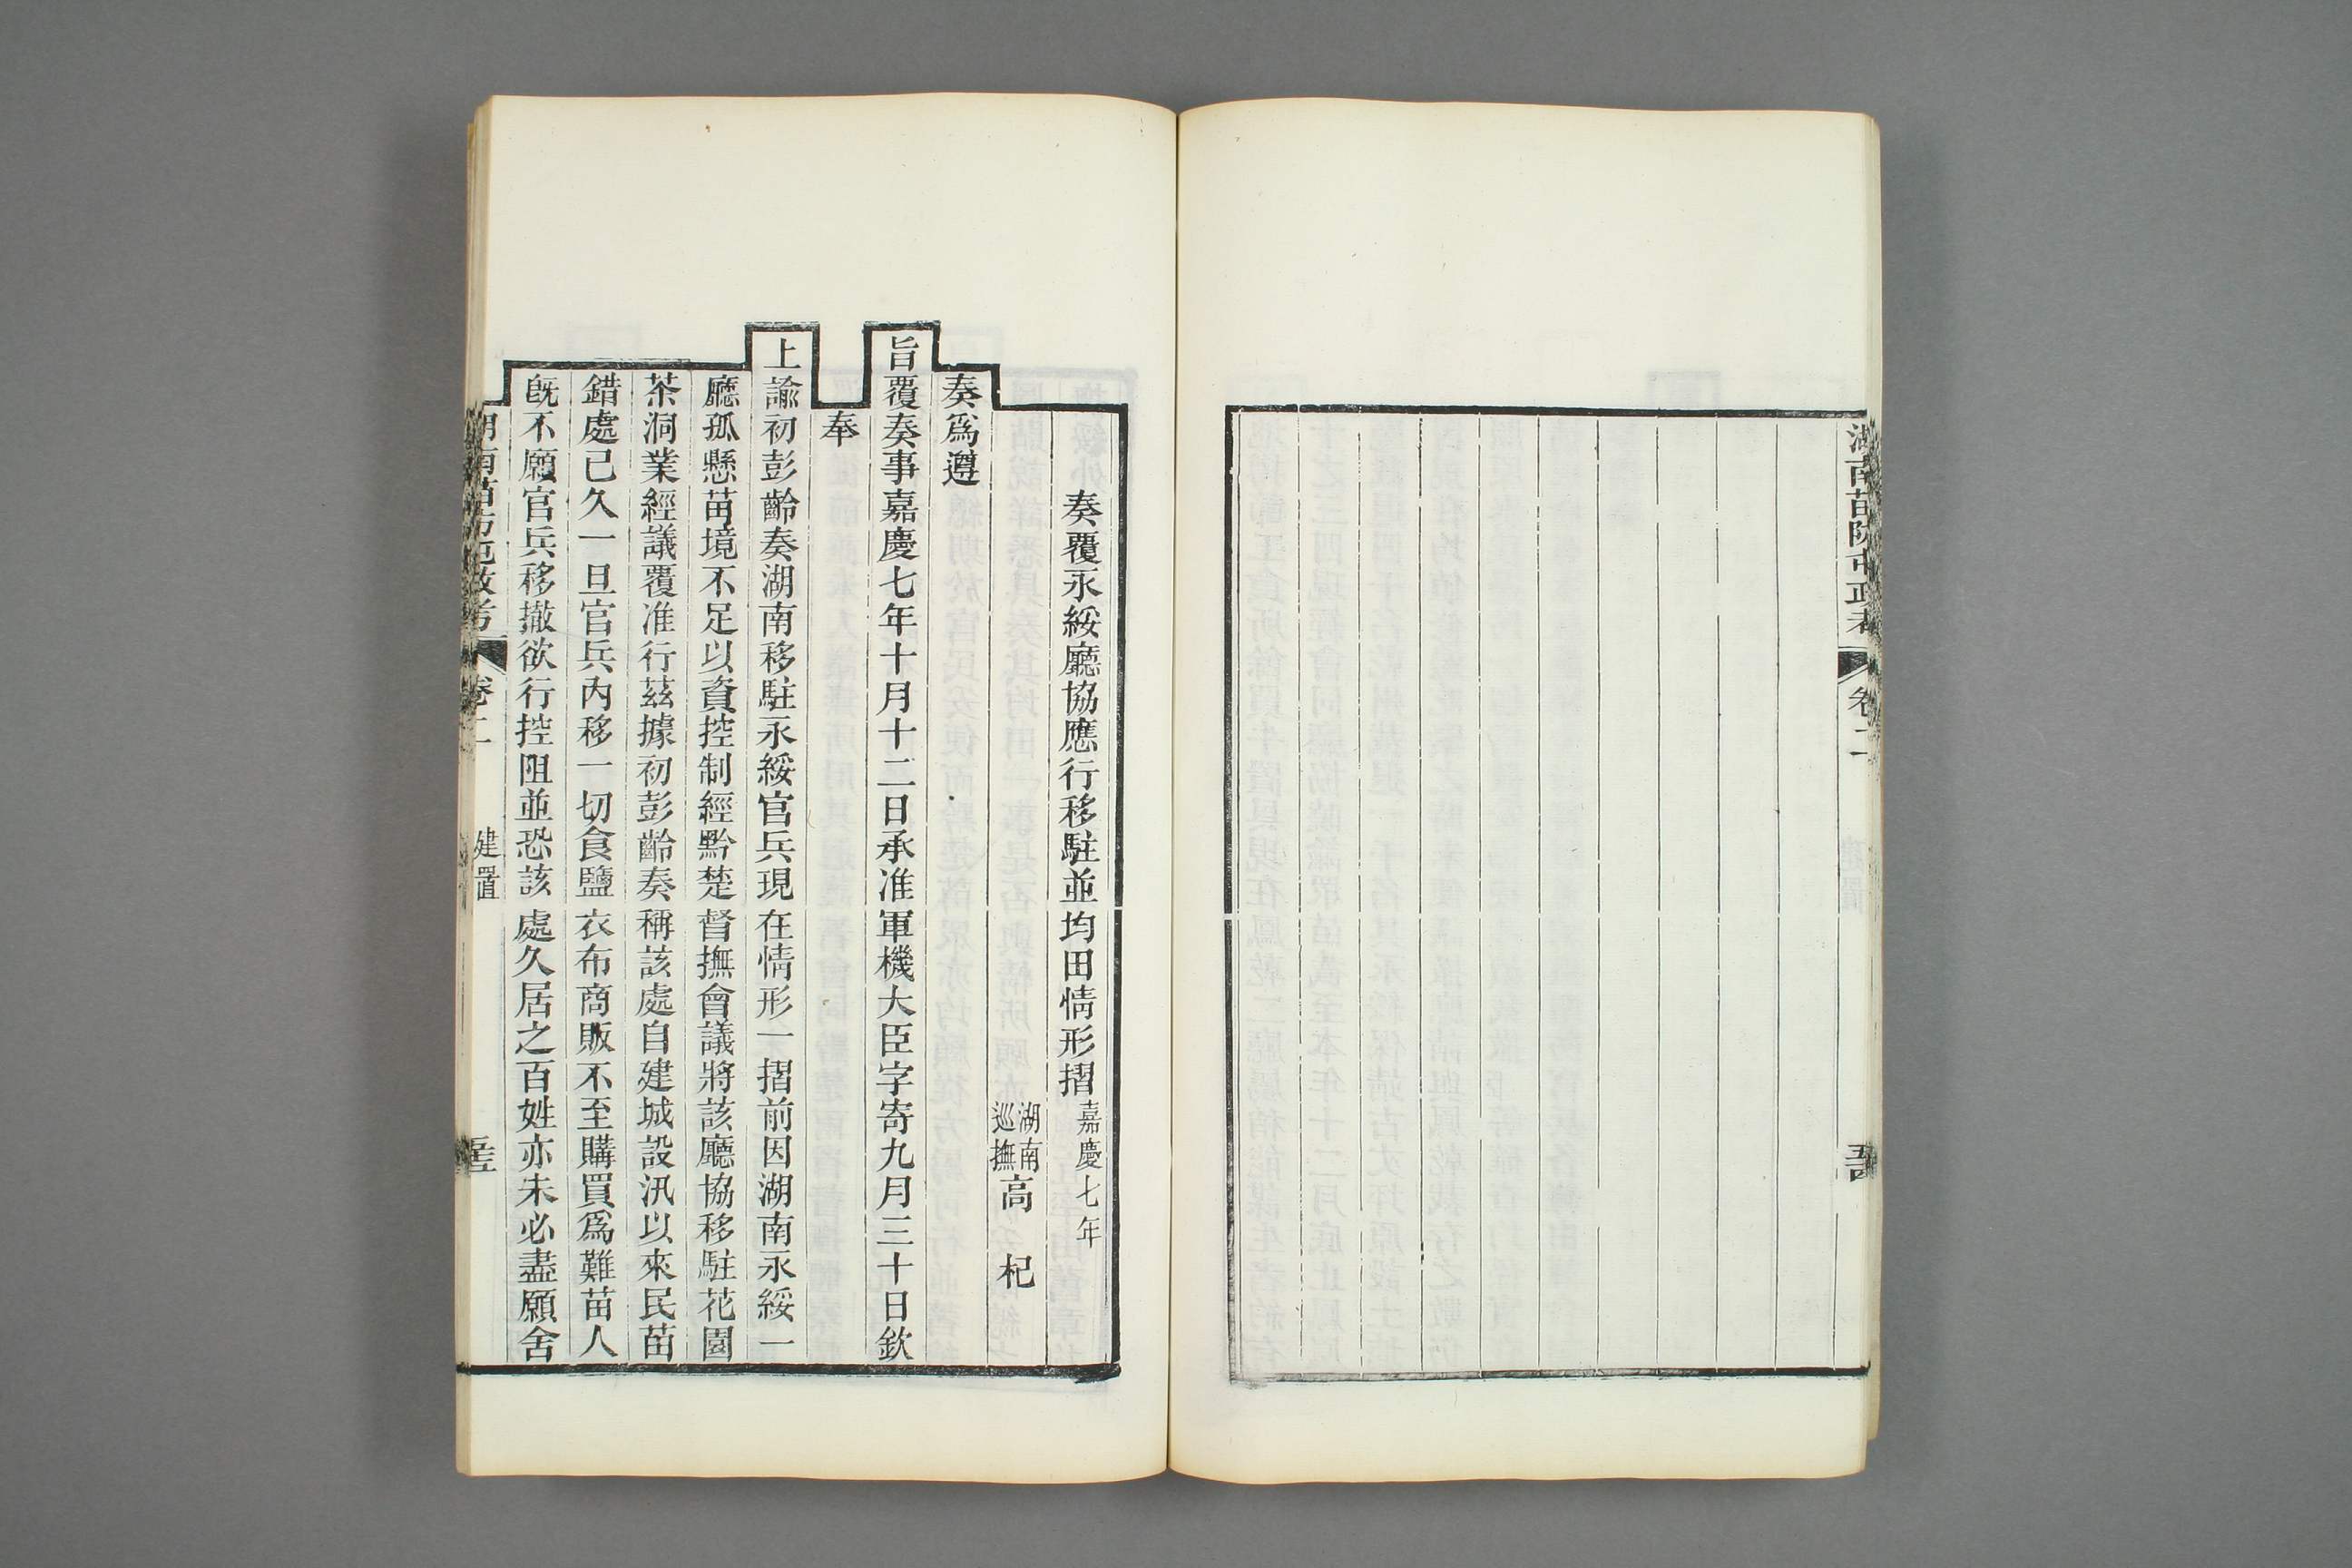 湖南苗防屯政考
卷二
奏覆永綏廳協應行移駐並均田情形摺 嘉慶七年
湖南巡撫高 杞
奏爲遵
旨覆奏事嘉慶七年十月十二日承准軍機大臣字寄九月三十日欽
奉
上諭初彭齡奏湖南移駐永綏官兵現在情形一摺前因湖南永綏一
廳孤懸苗境不足以資控制經黔楚督撫會議將該廳協移駐花園
茶洞業經議覆准行茲據初彭齡奏稱該處自建城設汛以來民苗
錯處已久一旦官兵內移一切食鹽衣布商販不至購買爲難苗人
旣不願官兵移撤欲行控阻並恐該處久居之百姓亦未必盡願舍
湖南苗防屯政考
卷二
建置